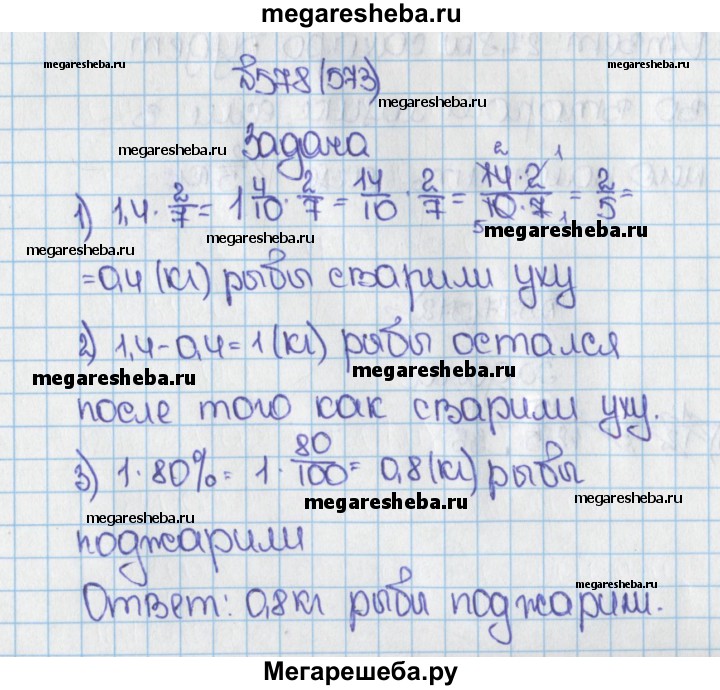 megaresheba.ru
megaresheba.ru
megaresheba.ru
№578 (573)
megaresheba.ru
megaresheba.ru
Задача
1) 1,4 · 2/7 = 1 4/10 · 2/7 = 14/10 · 2/7 = 14·2/10·7 = 2/5 =
2 1
5 1
megaresheba.ru
megaresheba.ru
megaresheba.ru
= 0,4 (кг) рыбы сварили уху
2) 1,4 - 0,4 = 1 (кг) рыбы остался
megaresheba.ru
megaresheba.ru
после того как сварили уху.
3) 1 · 80% = 1 · 80/100 = 0,8 (кг) рыбы
megaresheba.ru
megaresheba.ru
поджарили
megaresheba.ru
Ответ: 0,8 кг рыбы поджарили.
megaresheba.ru
Мегарешеба.ру